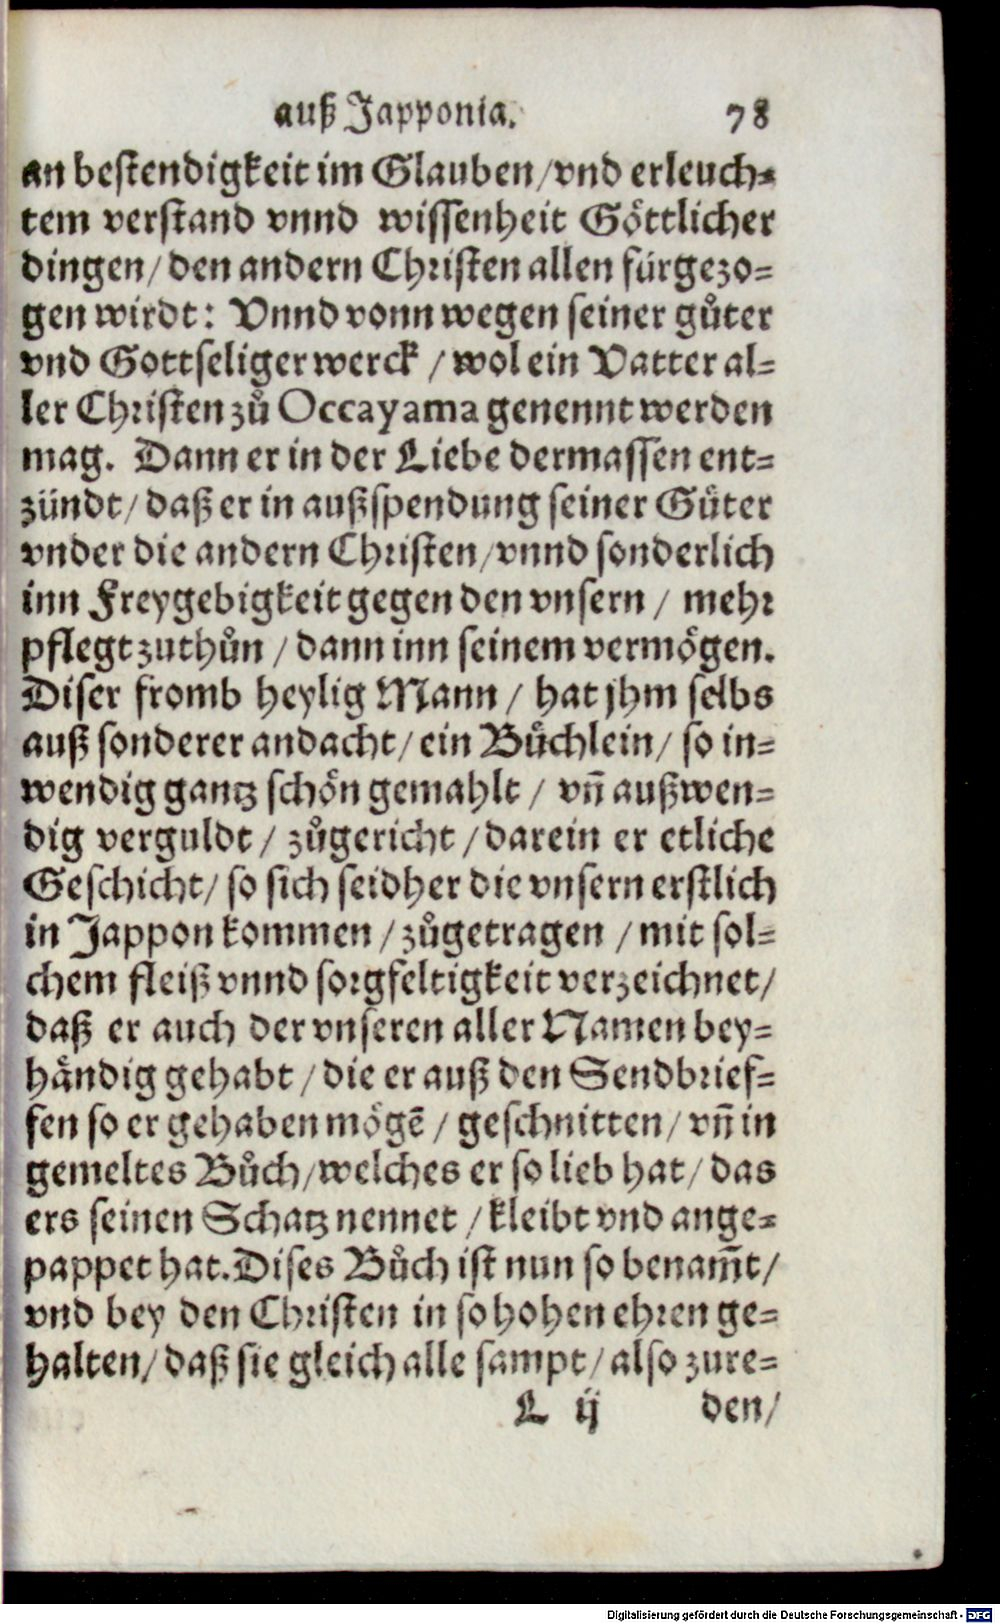 auß Japponia. 78
an bestendigkeit im Glauben/vnd erleuch-
tem verstand vnnd wissenheit Göttlicher
dingen/den andern Christen allen fürgezo-
gen wirdt: Vnnd vonn wegen seiner gůter
vnd Gottseliger werck / wol ein Vatter al-
ler Christen zů Occayama genennt werden
mag. Dann er in der Liebe dermassen ent-
zündt/daß er in außspendung seiner Güter
vnder die andern Christen/vnnd sonderlich
inn Freygebigkeit gegen den vnsern / mehr
pflegt zuthůn / dann inn seinem vermögen.
Diser fromb heylig Mann / hat jhm selbs
auß sonderer andacht/ein Bůchlein/ so in-
wendig gantz schön gemahlt / vñ außwen-
dig verguldt / zůgericht /darein er etliche
Geschicht/so sich seidher die vnsern erstlich
in Jappon kommen /zůgetragen /mit sol-
chem fleiß vnnd sorgfeltigkeit verzeichnet/
daß er auch der vnseren aller Namen bey-
händig gehabt /die er auß den Sendbrief-
fen so er gehaben mögē / geschnitten/ vñ in
gemeltes Bůch/welches er so lieb hat/das
ers seinen Schatz nennet /kleibt vnd ange-
pappet hat. Dises Bůch ist nun so benam̄t/
vnd bey den Christen in so hohen ehren ge-
halten/daß sie gleich alle sampt/also zure-
L ij den/
Digitalisierung gefördert durch die Deutsche Forschungsgemeinschaft - DFG